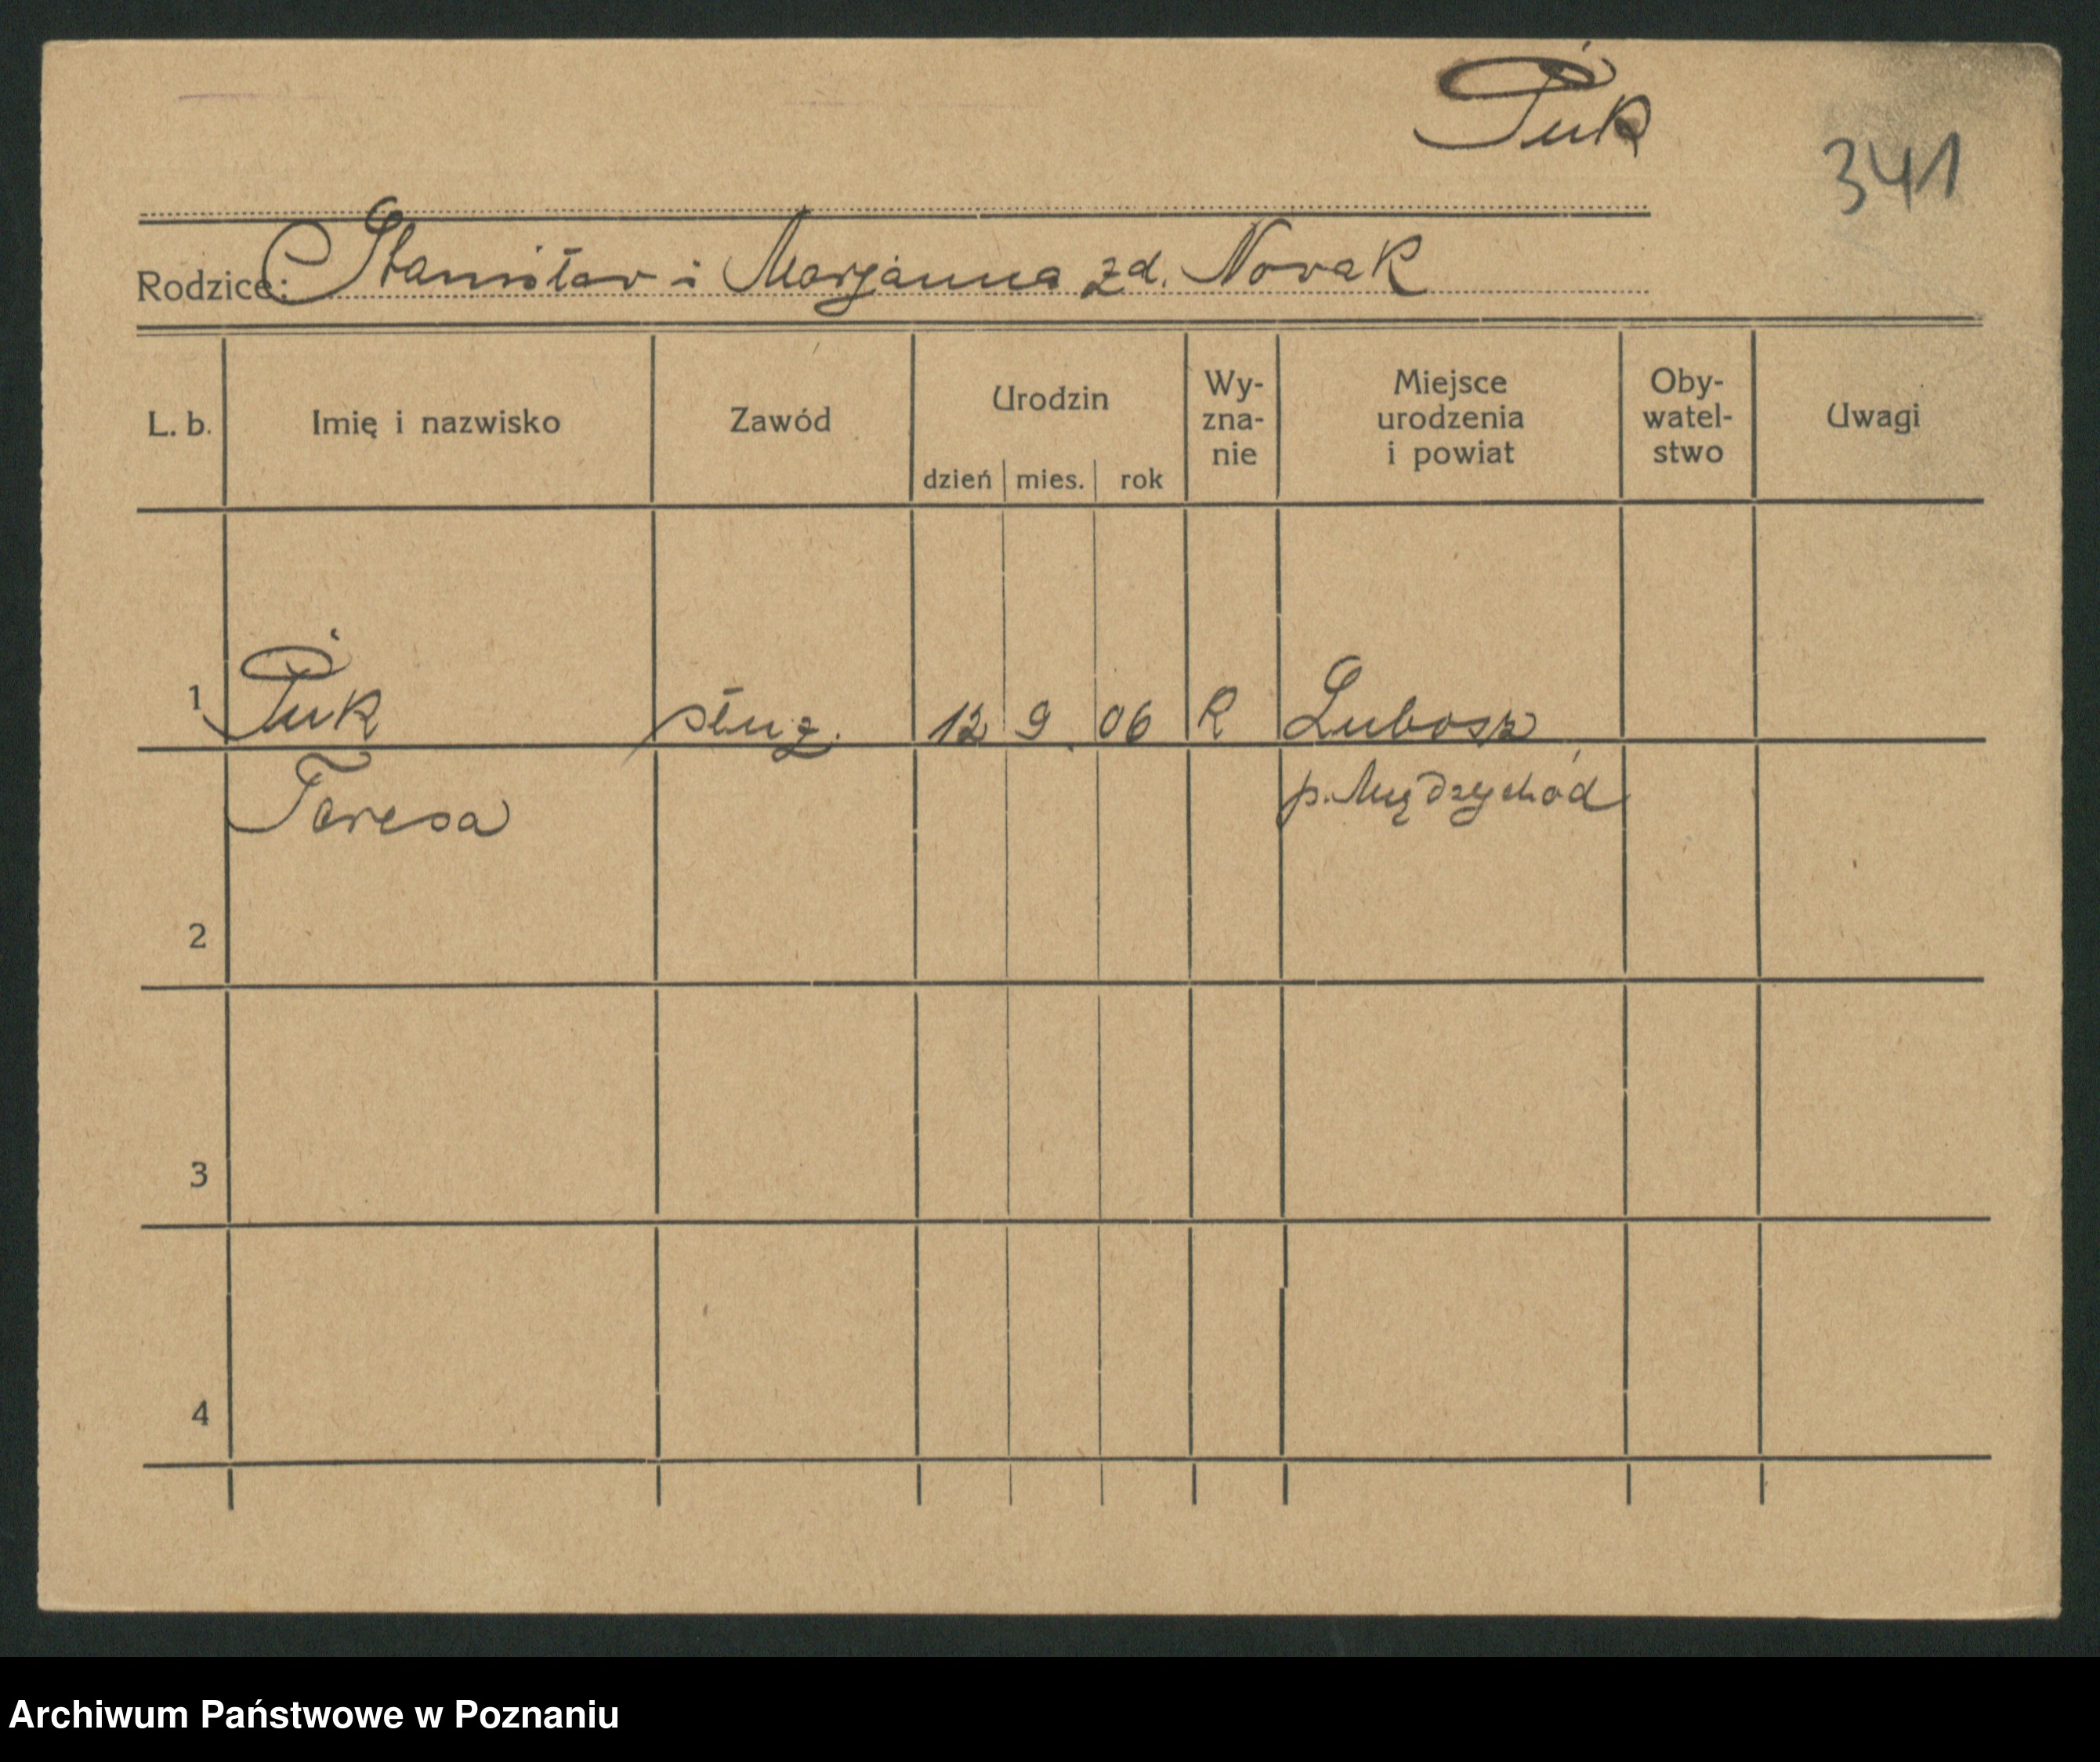 Puk
341
Rodzice: Stanisłav i Marjanna zd. Novak
L. b.
Imię i nazwisko
Zawód
Urodzin
dzień mies. rok
Wy-
zna-
nie
Miejsce
urodzenia
i powiat
Oby-
watel-
stwo
Uwagi
1 Puk służ. 12 9 06 R Lubosz
Teresa p. Międzychód
2
3
4
Archiwum Państwowe w Poznaniu